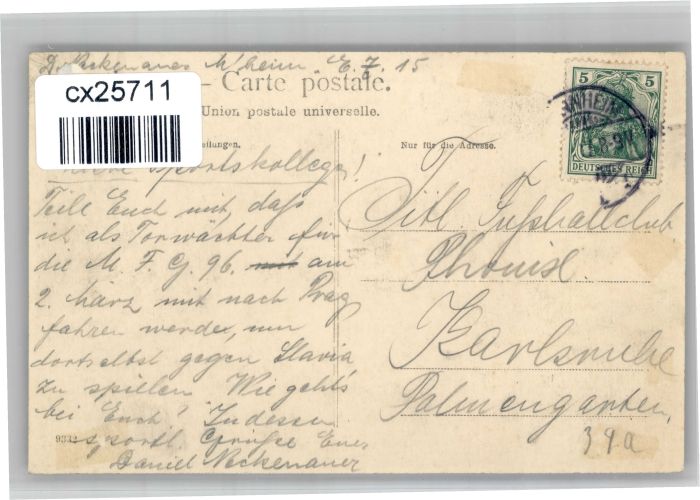 D. Neckenauer M'heim E. 7. 15
cx25711
Carte postale.
Union postale universelle.
eilungen.
Nur für die Adresse.
5 5
DEUTSCHES REICH
Sportskollege!
Teile Euch mit, daß
ich als Torwächter für
die M. F. G. 96. am
2. März mit nach Prag
fahren werde, um
dortselbst gegen Slavia
zu spielen Wie geht's
bei Euch? Indessen
sportl. Grüße Euer
Daniel Neckenauer
Titl. Fußballclub
Phönix.
Karlsruhe
Palmengarten,
39a